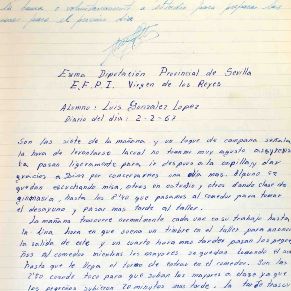 la buena o voluntariamente a estudio para preparar las
para el proximo dia.
Exma Diputación Provincial de Sevilla
E.F.P.I. Virgen de los Reyes
Alumno: Luis Gonzalez Lopez
Diario del dia: 2-2-67
Son las siete de la mañana y un toque de campana señala
la hora de levantarse lavarse
pasan ligeramente para ir despues a la capilla y dar
gracias a Dios por conservarnos una dia mas. Alguno se
quedan escuchando misa, otros en estudio y otros dando clase de
gimnasia, hasta las 8'40 que pasamos al comedor para tomar
el desayuno y pasar mas tarde al taller.
La mañana trascurre normalmente cada uno con su trabajo hasta
la Una, hora en que suena un timbre en el taller para anunciar
la salida de este y un cuarto hora mas tardes pasan los peque-
ños al comedor mientras los mayores se quedan
hasta que le llega el turno de entrar en el comedor. Son las
2'50 cuando toca para que suban los mayores a clase ya que
los pequeños subieron 20 minutos mas tarde. La tarde trascu